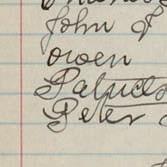 John J
Owen
Patrick
Peter